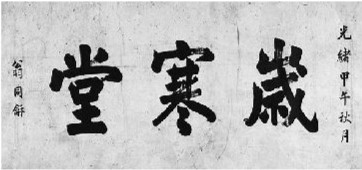 光緒甲午秋月
歲寒堂
翁同龢